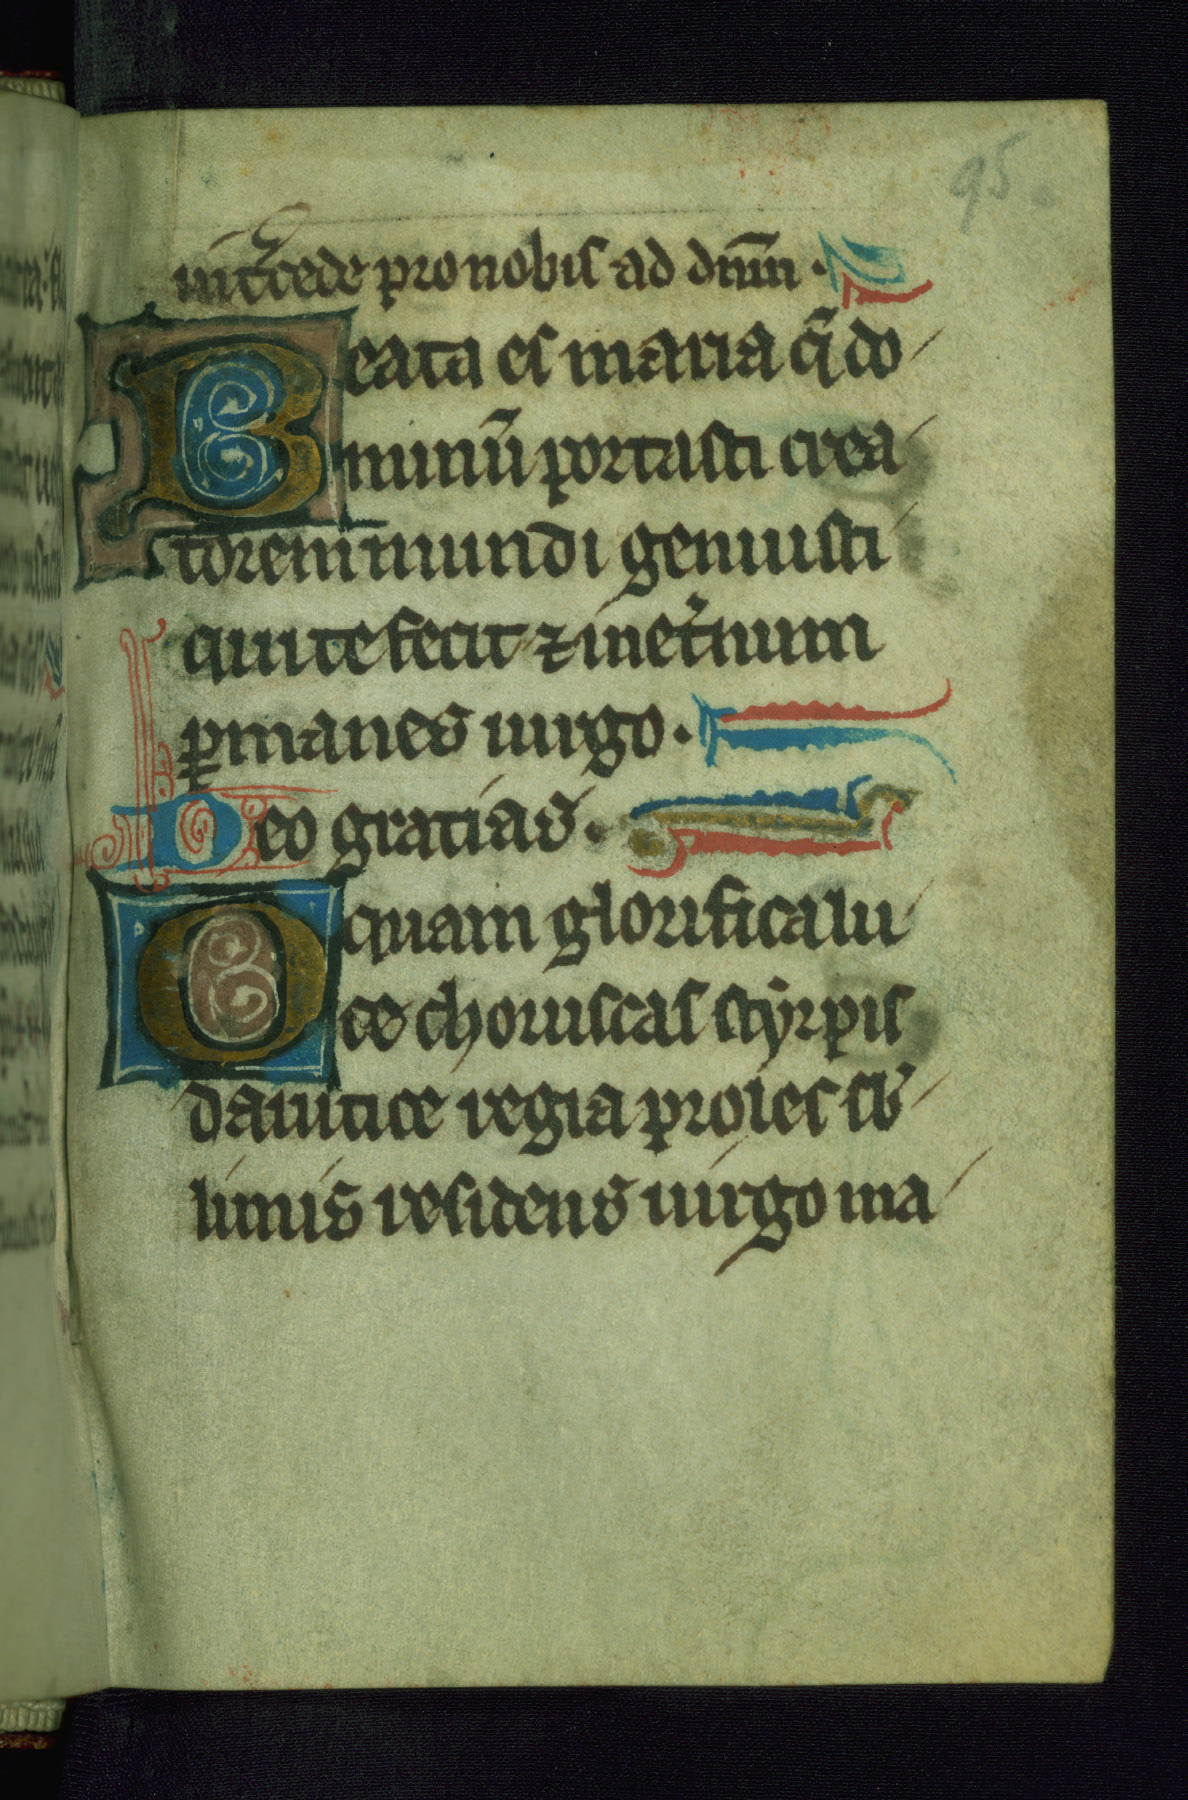 95
int̾cede pro nobis ad dn̄m ·
Beata es maria q̄ do
minū portasti crea
torem mundi genuisti
qui te fecit ⁊ in et̾num
ꝑmanes uirgo ·
Deo gratias ·
O quam glorifica lu
ce choruscas styrpis
dauitice regia proles su
limis residens uirgo ma